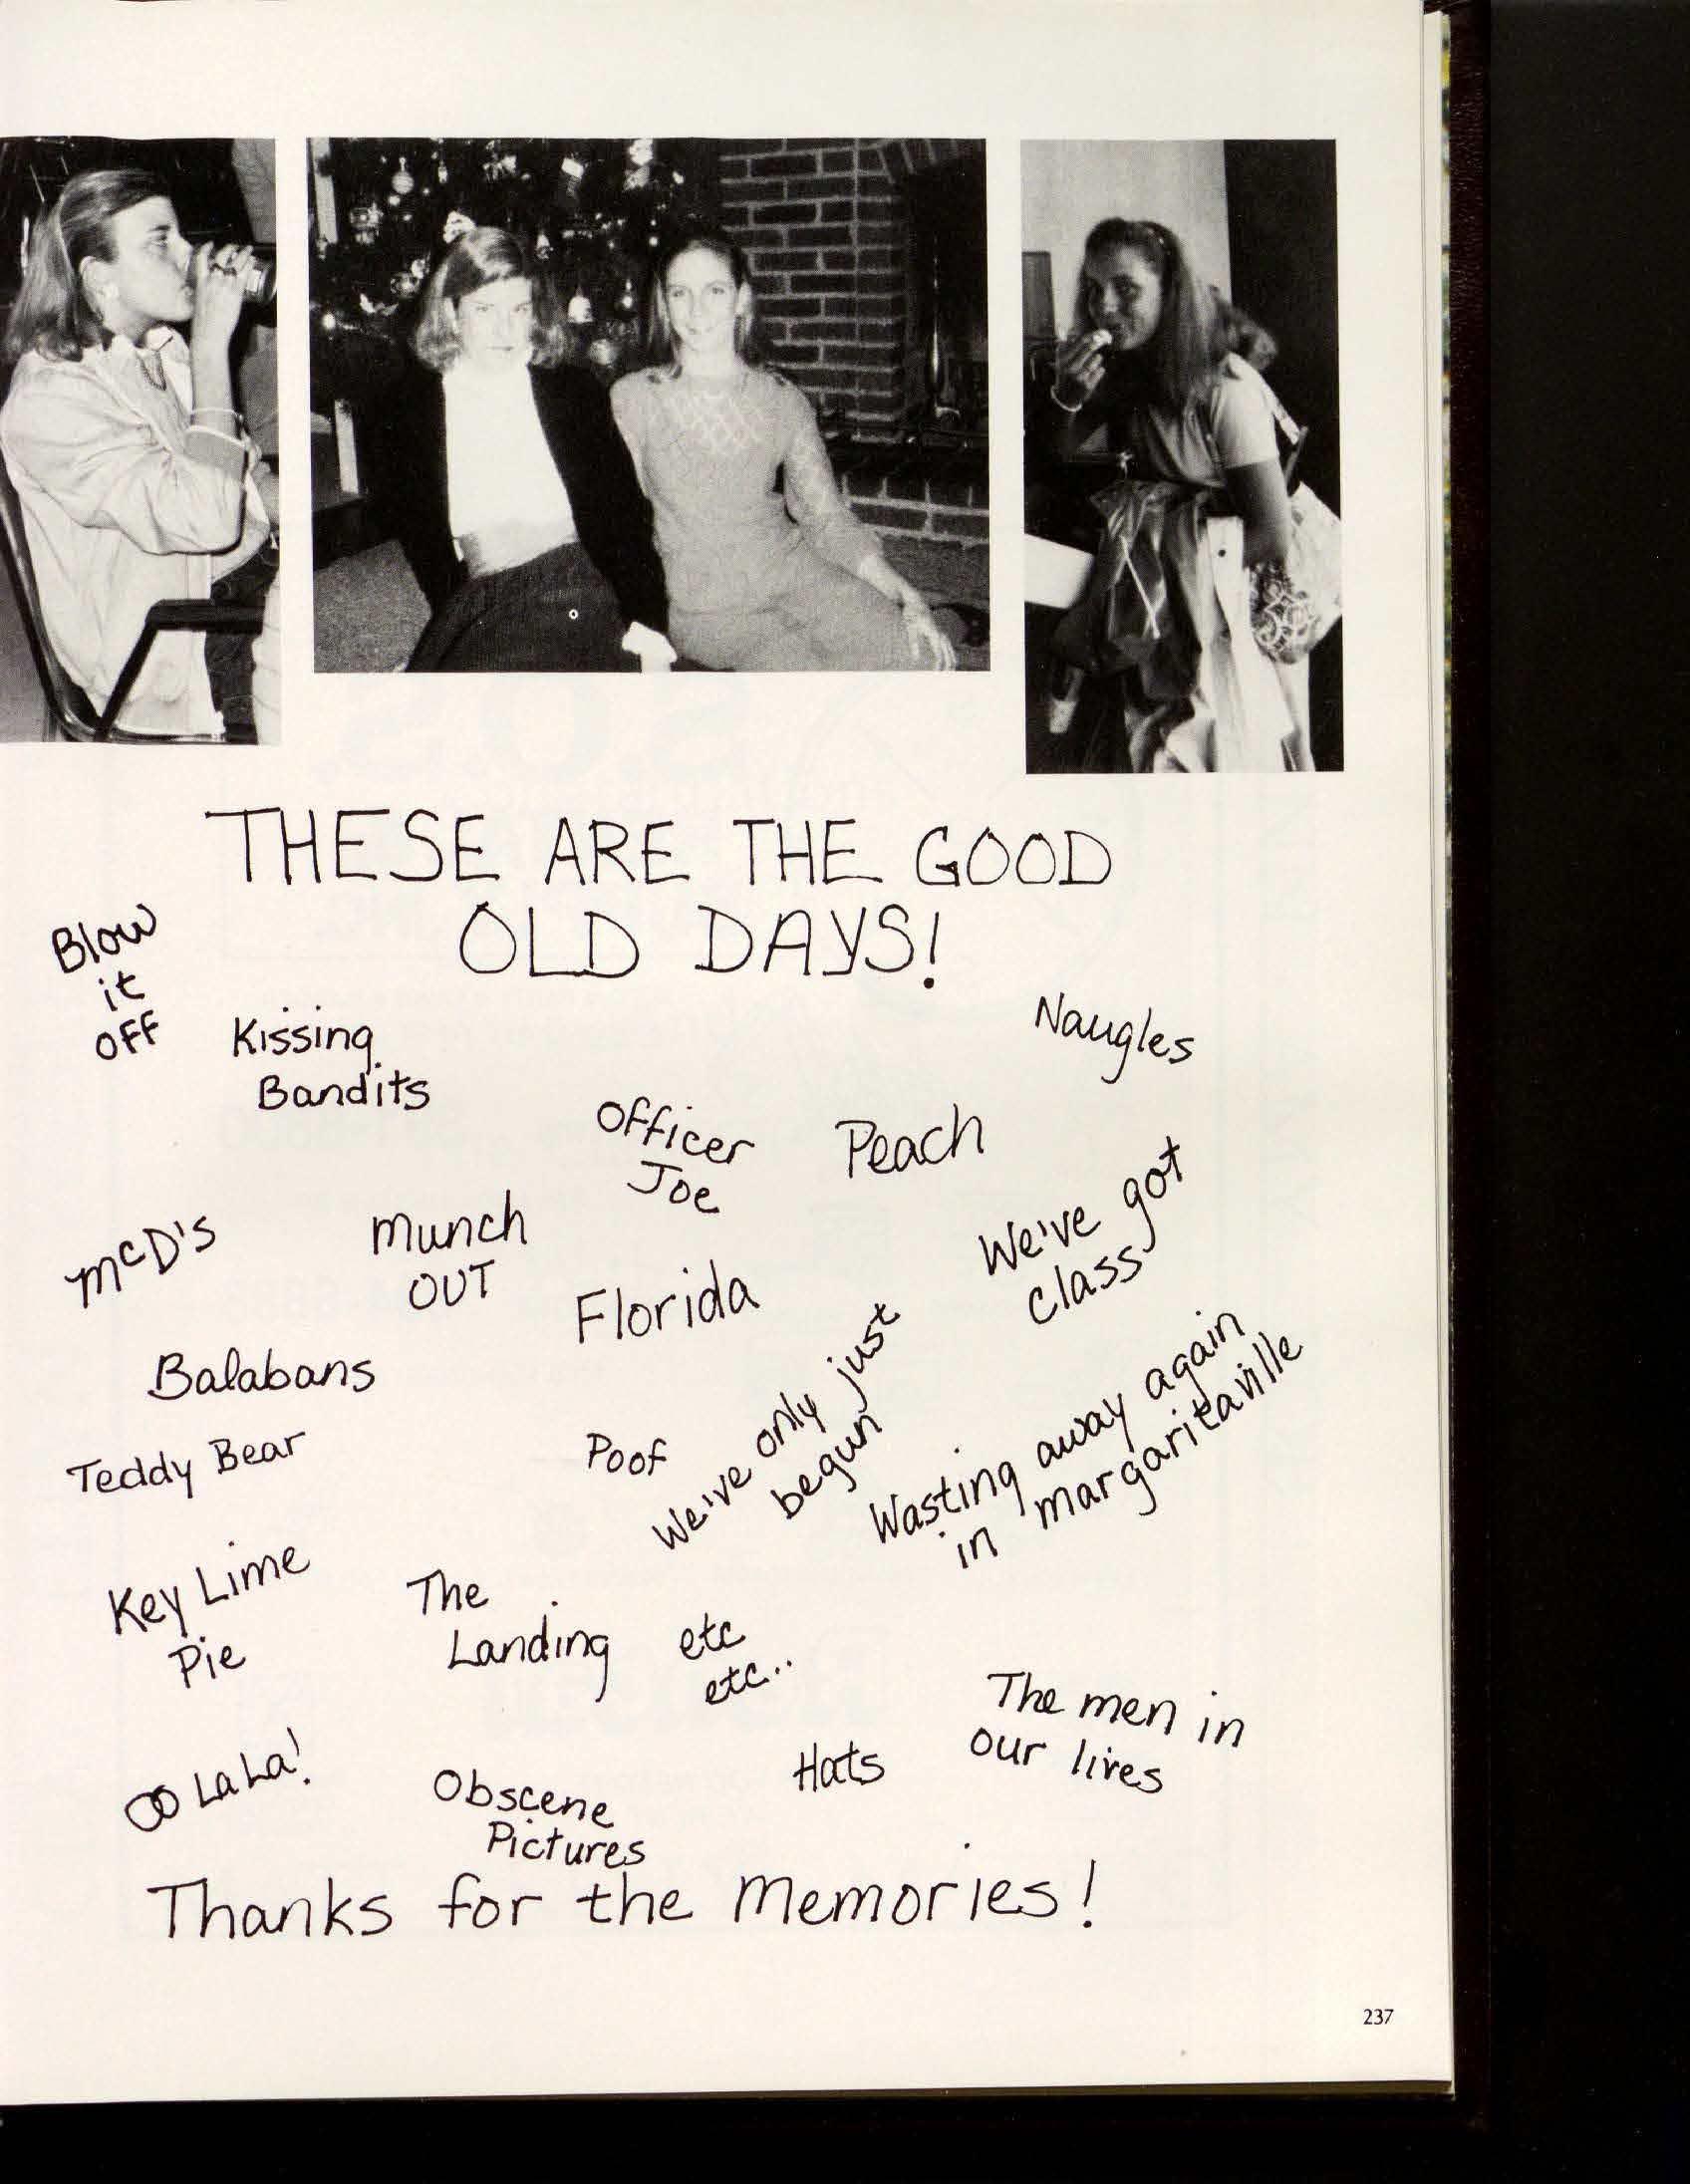 THESE ARE THE GOOD
OLD DAYS!
Blow
it
OFF
Kissing
Bandits
Naugles
Officer
Joe
Peach
McD's
Munch
OUT
Florida
We've got
class
Balabans
Teddy Bear
Poof
We've only just
begun
Wasting away again
in margaritaville
Key Lime
Pie
The
Landing
etc
etc..
The men in
our lives
OO LaLa!
Obscene
Pictures
Hats
Thanks for the Memories!
237